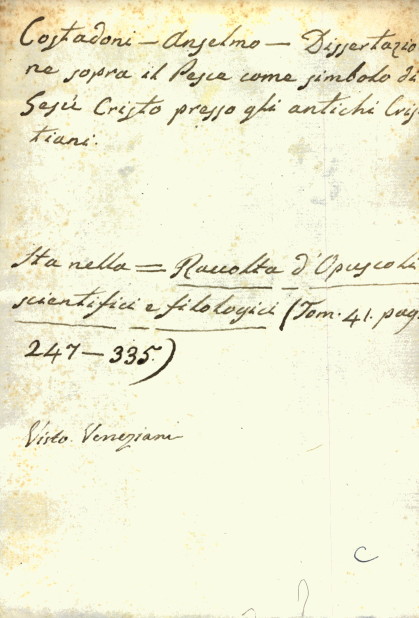 Costadoni — Anselmo — Dissertazio
ne sopra il Pesce come simbolo di
Gesù Cristo presso gli antichi Cris
tiani.
Sta nella = Raccolta d'Opuscoli
scientifici e filologici (Tom. 41. pag.
247 — 335.)
Visto Veneziani
C